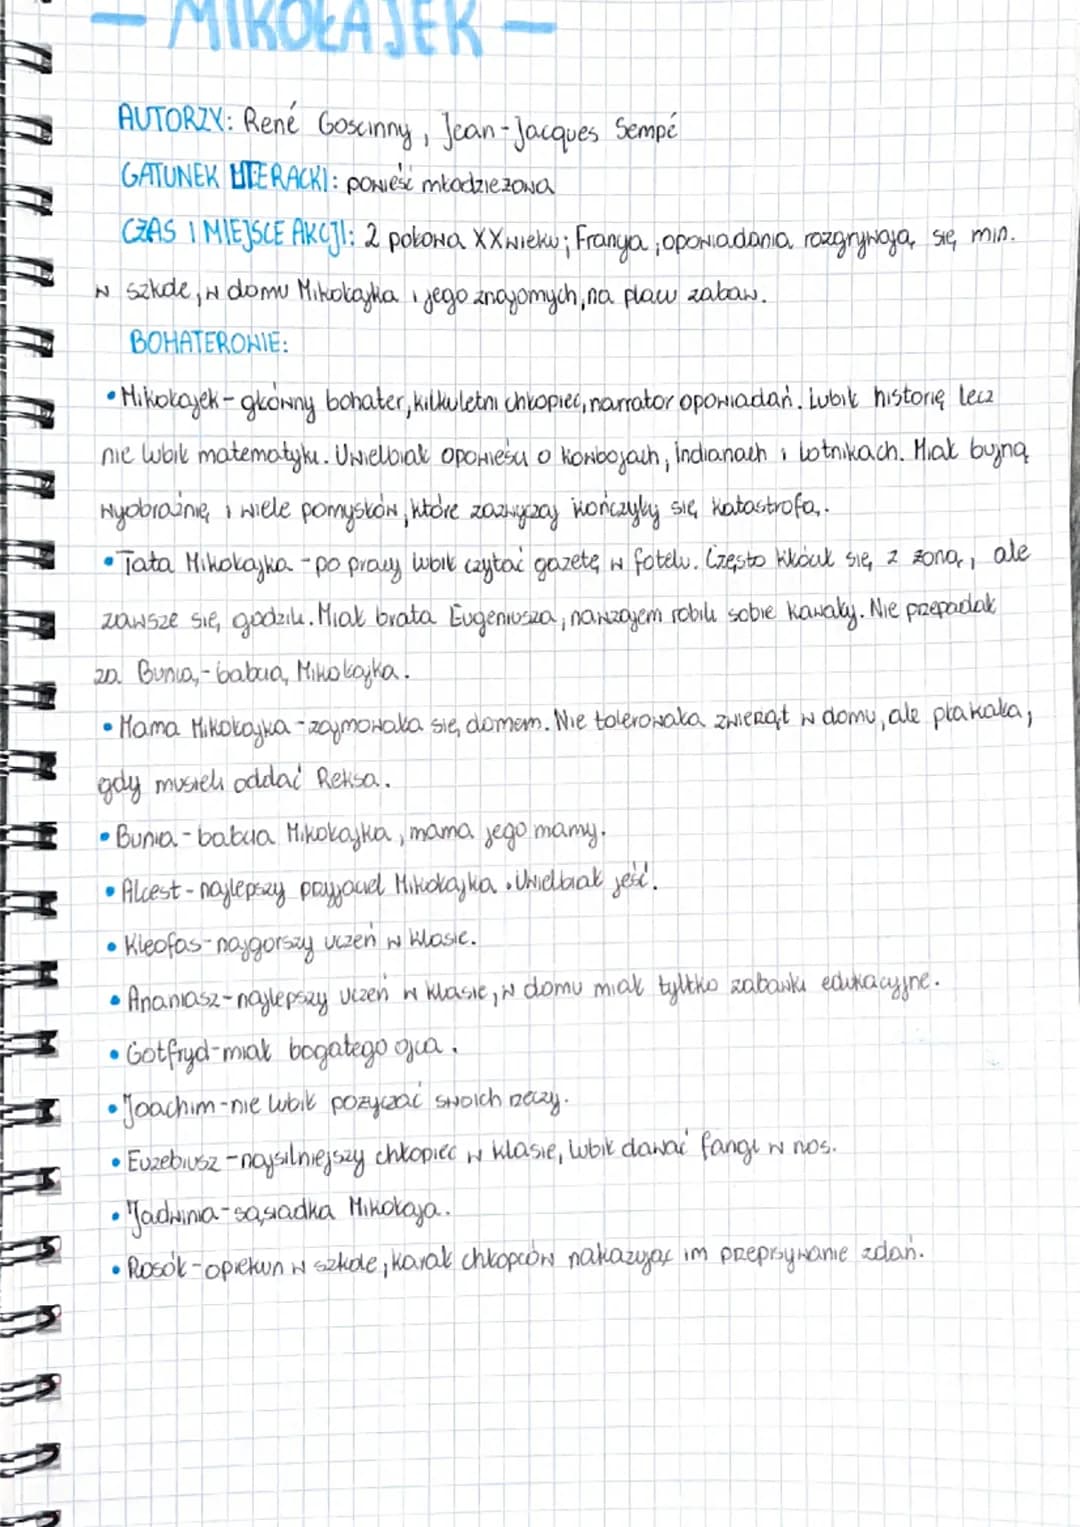 — MIKOŁAJEK —
AUTORZY: René Goscinny, Jean-Jacques Sempé
GATUNEK LITERACKI: powieść młodzieżowa
CZAS I MIEJSCE AKCJI: 2 połowa XX wieku; Francja, opowiadania rozgrywają się min.
w szkole, w domu Mikołajka i jego znajomych, na placu zabaw.
BOHATEROWIE:
• Mikołajek - główny bohater, kilkuletni chłopiec, narrator opowiadań. Lubił historię lecz
nie lubił matematyki. Uwielbiał opowieści o kowbojach, Indianach i lotnikach. Miał bujną
wyobraźnię i wiele pomysłów, które zazwyczaj kończyły się katastrofą.
• Tata Mikołajka - po pracy lubił czytać gazetę w fotelu. Często kłócił się z żoną, ale
zawsze się godzili. Miał brata Eugeniusza, nawzajem robili sobie kawały. Nie przepadał
za Bunią - babcią Mikołajka.
• Mama Mikołajka - zajmowała się domem. Nie tolerowała zwierząt w domu, ale płakała,
gdy musieli oddać Reksa.
• Bunia - babcia Mikołajka, mama jego mamy.
• Alcest - najlepszy przyjaciel Mikołajka. Uwielbiał jeść.
• Kleofas - najgorszy uczeń w klasie.
• Ananiasz - najlepszy uczeń w klasie, w domu miał tyltko zabawki edukacyjne.
• Gotfryd - miał bogatego ojca.
• Joachim - nie lubił pożyczać swoich rzeczy.
• Euzebiusz - najsilniejszy chłopiec w klasie, lubił dawać fangi w nos.
• Jadwinia - sąsiadka Mikołaja.
• Rosół - opiekun w szkole, karał chłopców nakazując im przepisywanie zdań.